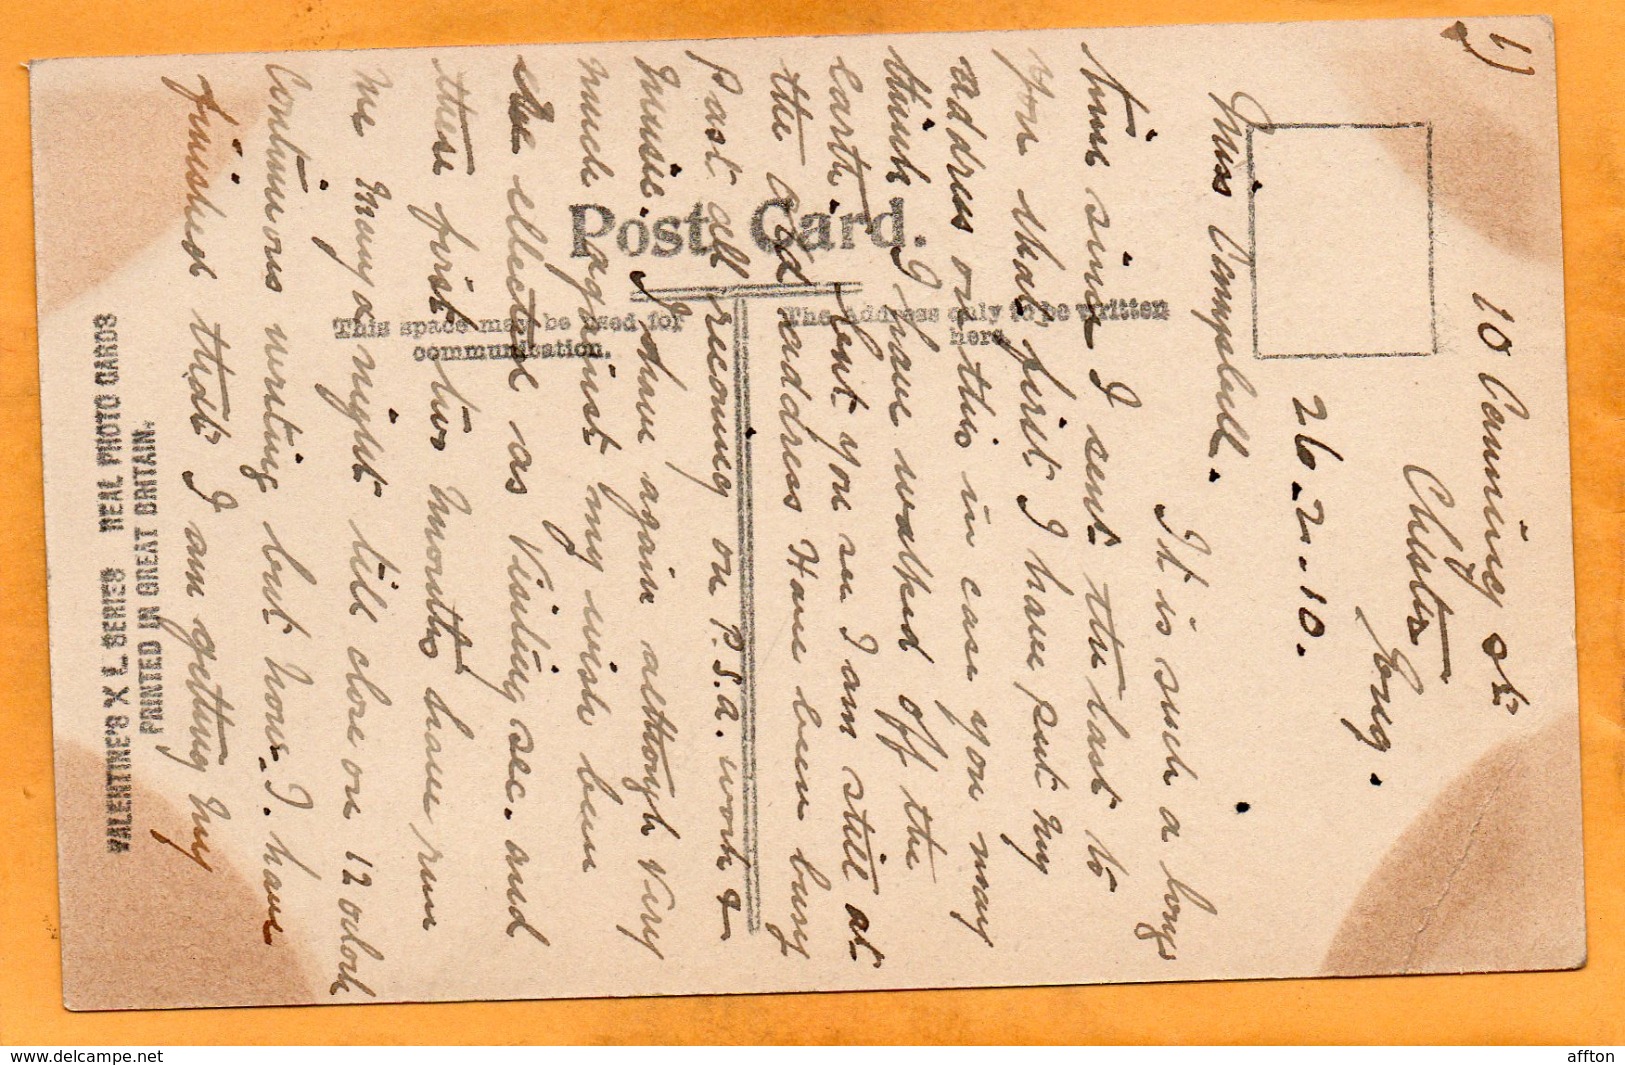 1)
10 Canning St
Chester
Eng.
26.2.10.
Miss Campbell.
It is such a longs
time since I sent the last to
you that first I have put my
address on this in case you may
think I have walked off the
earth. I sent you in I am still at
the old address Have been busy
past all recoming on P.S.a. work &
music. I have again although very
much against my wish been
elected as Visiting sec. and
these first two months have run
me many a night till close on 12 oclock
Continuous writing but now I have
finished that I am getting my
Post Card.
This space may be used for
communication.
The Address only to be written
here.
VALENTINE'S X L SERIES REAL PHOTO CARDS
PRINTED IN GREAT BRITAIN.
delcampe.net
affton